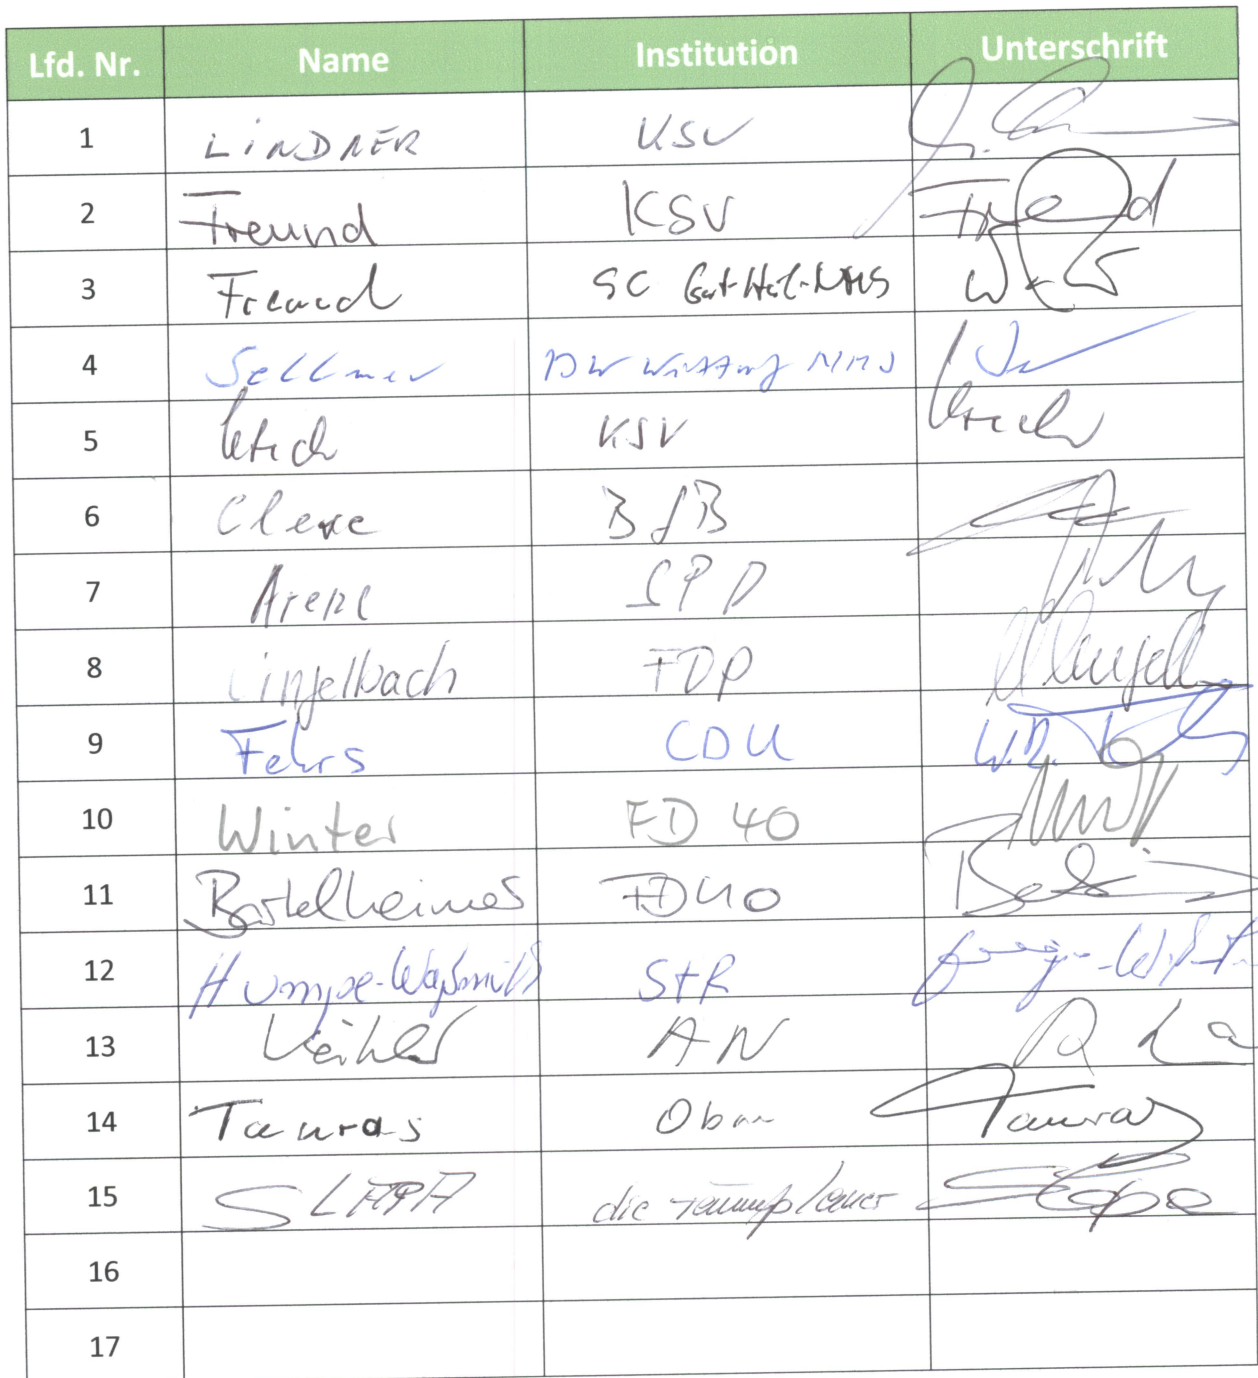 Lfd. Nr. Name Institution Unterschrift
1 LINDNER KSV
2 Freund KSV Freund
3 Freund SC Gut-Heil-NMS
4 Sellmer NMS
5 KSV
6 BfB
7 Arend SPD
8 Lingelbach FDP
9 Fehrs CDU
10 Winter FD 40
11 Bartelheimer FD 40
12 Humpe-Waßmuth StR
13 AN
14 Tauras Tauras
15 SLAPA die raumplaner Slapa
16
17